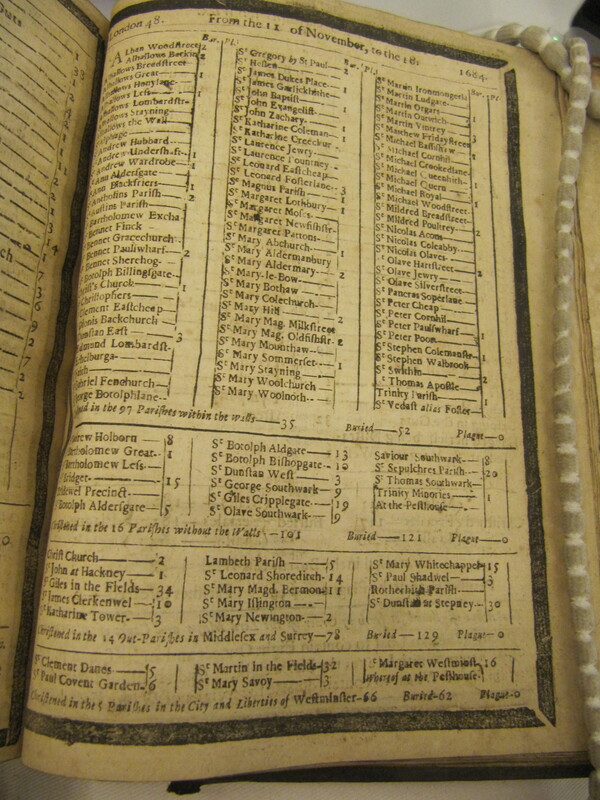 London 48. From the 11 of November, to the 18. 1684.
Bur. Pl.
Bur. Pl.
Bur. Pl.
Alban Woodstreet 2
Alhallows Barkin
Breadstreet
Great 1
Honylane
Less 1
Lombardstr
Stayning
the Wall
Andrew Hubbard
Andrew Undershaft 1
Andrew Wardrobe
Ann Aldersgate 1
Ann Blackfriers
Antholins Parish 2
Austins Parish
Bartholomew Excha
Bennet Finck
Bennet Gracechurch
Bennet Paulswharf 2
Bennet Sherehog
Botolph Billingsgate
Church 1
Christophers
Clement Eastcheap
Dionis Backchurch
Dunstan East 3
Edmond Lombardst.
Ethelburga
Faith
Gabriel Fenchurch
George Botolphlane
St Gregory by St Paul 2
St Hellen
St James Dukes Place 1
St James Garlickhithe
St John Baptist
St John Evangelist
St John Zachary
St Katharine Coleman 1
St Katharine Creechur
St Laurence Jewry
St Laurence Pountney
St Leonard Eastcheap
St Leonard Fosterlane 3
St Magnus Parish 1
St Margaret Lothbury 1
St Margaret Moses
St Margaret Newfishstr
St Margaret Pattons
St Mary Abchurch 1
St Mary Aldermanbury
St Mary Aldermary 2
St Mary-le-Bow
St Mary Bothaw
St Mary Colechurch
St Mary Hill 2
St Mary Mag. Milkstreet
St Mary Mag. Oldfishstr 2
St Mary Mounthaw
St Mary Sommerset 1
St Mary Stayning
St Mary Woolchurch
St Mary Woolnoth
St Martin Ironmongerl.
St Martin Ludgate
St Martin Orgars
St Martin Outwich
St Martin Vintrey 3
St Matthew Fridaystreet
St Michael Bassishaw
St Michael Cornhil
St Michael Crookedlane
St Michael Queenhith
St Michael Quern
St Michael Royal
St Michael Woodstreet
St Mildred Breadstreet
St Mildred Poultrey
St Nicolas Acons
St Nicolas Coleabby
St Nicolas Olaves
St Olave Hartstreet
St Olave Jewry
St Olave Silverstreet
St Pancras Soperlane
St Peter Cheap
St Peter Cornhil
St Peter Paulswharf
St Peter Poor
St Stephen Colemanstr
St Stephen Walbrook
St Swithin
St Thomas Apostle
Trinity Parish
St Vedast alias Foster
in the 97 Parishes within the Walls 35 Buried 52 Plague 0
Andrew Holborn 8
Bartholomew Great 1
Bartholomew Less
Bridget 15
Bridewel Precinct
Botolph Aldersgate 5
St Botolph Aldgate 13
St Botolph Bishopgate 10
St Dunstan West 3
St George Southwark 9
St Giles Cripplegate 19
St Olave Southwark 9
Saviour Southwark 8
St Sepulchres Parish 20
St Thomas Southwark
Trinity Minories 1
At the Pesthouse
Christened in the 16 Parishes without the Walls 101 Buried 121 Plague 0
Christ Church 2
St John at Hackney 1
St Giles in the Fields 34
St James Clerkenwel 10
St Katharine Tower 3
Lambeth Parish 5
St Leonard Shoreditch 14
St Mary Magd. Bermons 11
St Mary Islington
St Mary Newington 2
St Mary Whitechappel 15
St Paul Shadwel 3
Rotherhith Parish
St Dunstan at Stepney 30
Christened in the 14 Out-Parishes in Middlesex and Surrey 78 Buried 129 Plague 0
St Clement Danes 5
St Paul Covent Garden 6
St Martin in the Fields 32
St Mary Savoy 3
St Margaret Westminst. 16
whereof at the Pesthouse
Christened in the 5 Parishes in the City and Liberties of Westminster 66 Buried 62 Plague 0